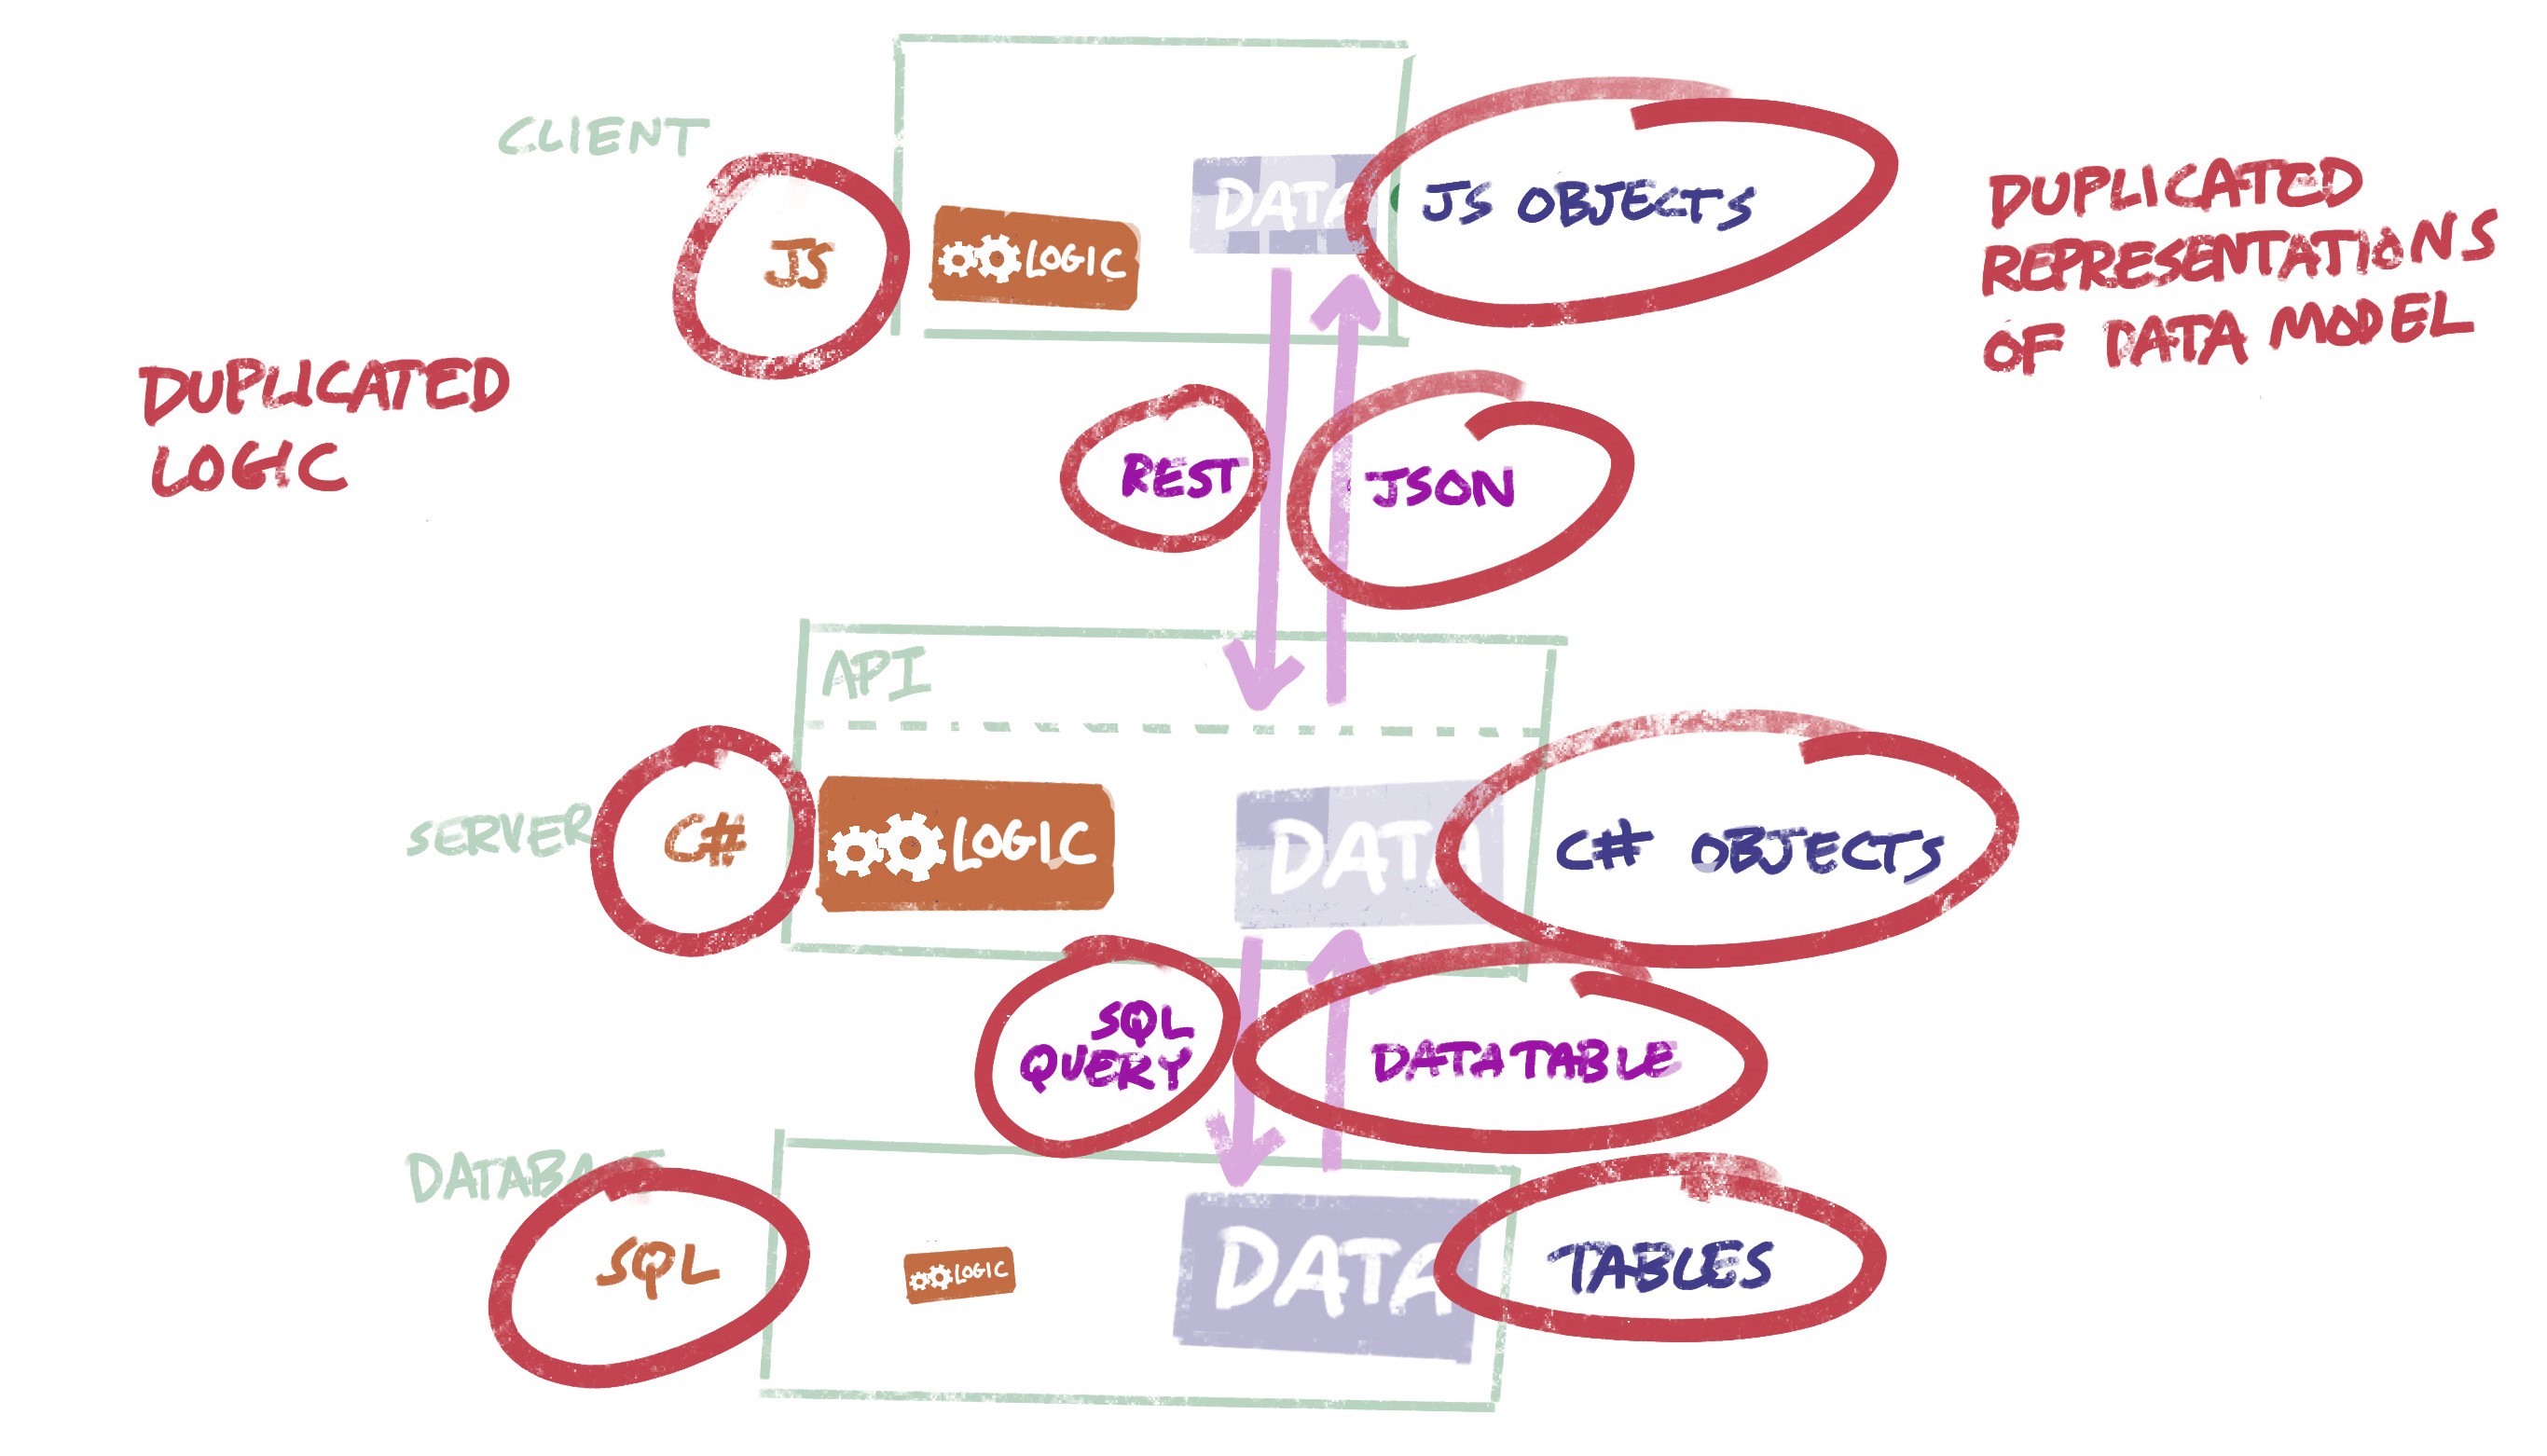 CLIENT
JS
LOGIC
DATA
JS OBJECTS
DUPLICATED
REPRESENTATIONS
OF DATA MODEL
DUPLICATED
LOGIC
REST
JSON
API
SERVER
C#
LOGIC
DATA
C# OBJECTS
SQL
QUERY
DATATABLE
DATABASE
SQL
LOGIC
DATA
TABLES